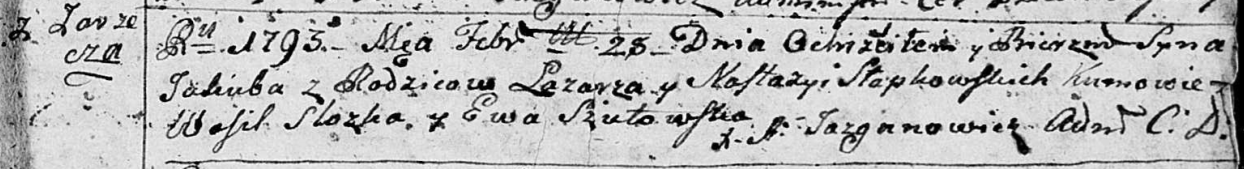 z Zarze
cza
Ru 1793. Mca Febr 23 Dnia Ochrzciłem y Bierzm Syna
Jakuba z Rodzicow Łazarza y Nastazyi Stapkowskich Kumowie
Wasil Slozka y Ewa Szutowska X. A. Jazganowicz Adm C. D.